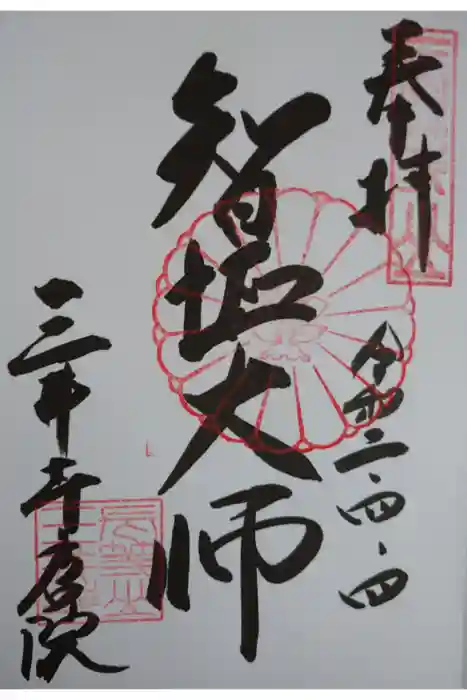 奉拝
令和二・四・四
智証大師
三井寺唐院